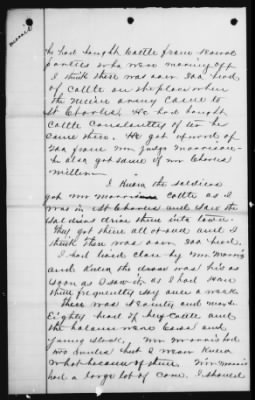 he had bought Cattle from several
parties who was moving off
I think there was over 200 head
of Cattle on the place when
the Union army Came to
St Charles. He had bought
Cattle Constantly after he
came there. He got upward of
200 from Mr Judge Morrison
he also got some of Mr Charles
I Knew the soldiers
got Mr Morris Cattle as I
was in St Charles and saw the
Soldiers drive them into town.
They got them all and I
think there was over 200 head.
I had lived close by Mr Morris
and Knew the drove was his as
soon as I saw it as I had gone
there frequently say once a week
there was Seventy and maybe
Eighty head of beef Cattle and
the balance were Cows and
young stock. Mr Morris had
two mules but I never Knew
what became of them. Mr Morris
had a large lot of Corn. I should